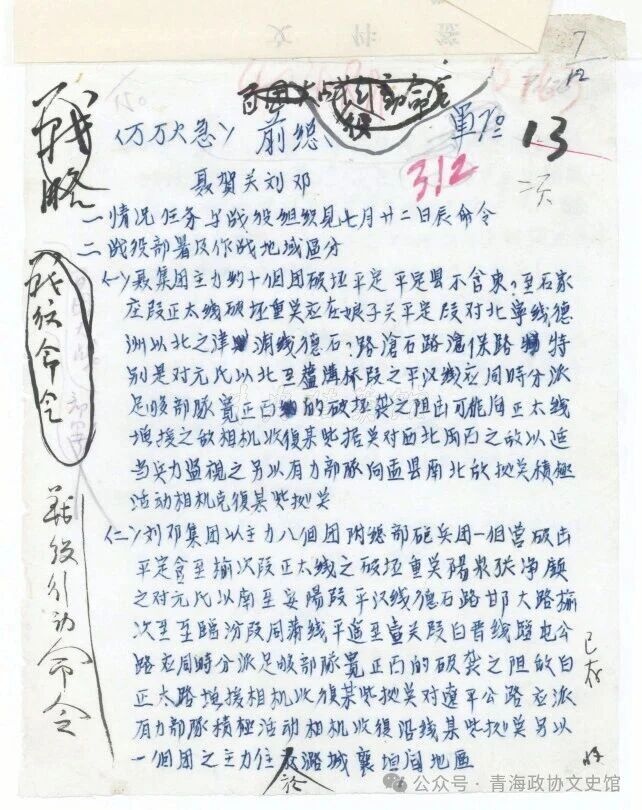 7/12
百团大战行动命令
战役
战略
〈万万火急〉前总、
军1号
13
312
二次
聂贺关刘邓
一情况任务与战役组织见七月廿二日辰命令
二战役部署及作战地域区分
㈠聂集团主力约十个团破坏平定平定县不含东?至石家
庄段正太线破坏重点应在娘子关平定段对北宁线德
州以北之津浦线德石?路沧石路沧保路特
别是对元氏以北至芦沟桥段之平汉线应同时分派
足够部队宽正面的破坏袭之阻击可能向正太线
增援之敌相机收复某些据点对西北两面之敌以适
当兵力监视之另以有力部队向盂县南北敌据点积极
活动相机克复某些据点
㈡刘邓集团以主力八个团附总部炮兵团一个营破击
平定含至榆次段正太线之破坏重点阳泉张净镇
之对元氏以南至安阳段平汉线德石路邯大路榆
次至至临汾段同蒲线平遥至壶关段白晋线路屯公
路应同时分派足够部队宽正面的破袭之阻敌向
正太路增援相机收复某些据点对辽平公路应派
有力部队积极活动相机收复沿线某些据点另以
一个团之主力位于潞城襄垣间地区
战役命令
战役行动命令
已存
公众号·青海政协文史馆